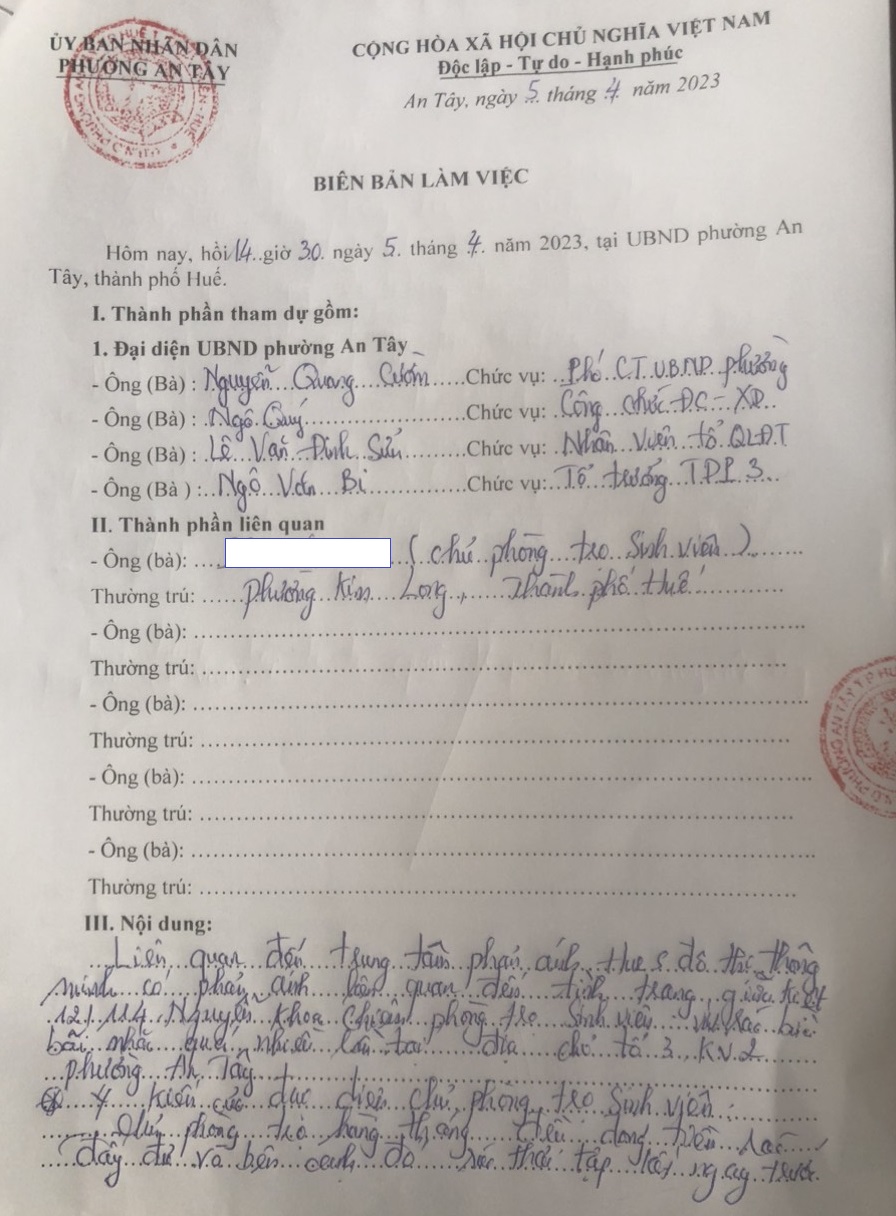 ỦY BAN NHÂN DÂN
PHƯỜNG AN TÂY
CỘNG HÒA XÃ HỘI CHỦ NGHĨA VIỆT NAM
Độc lập - Tự do - Hạnh phúc
An Tây, ngày 5 tháng 4 năm 2023
BIÊN BẢN LÀM VIỆC
Hôm nay, hồi 14 giờ 30 ngày 5 tháng 4 năm 2023, tại UBND phường An
Tây, thành phố Huế.
I. Thành phần tham dự gồm:
1. Đại diện UBND phường An Tây
- Ông (Bà) : Nguyễn Quang Chức vụ: Phó CT.UBND phường
- Ông (Bà) : Ngô Quý Chức vụ: Công chức ĐC - XD
- Ông (Bà) : Lê Văn Đình Chức vụ: Nhân viên tổ QLĐT
- Ông (Bà ) : Ngô Văn Bi Chức vụ: Tổ trưởng TDP 3
II. Thành phần liên quan
- Ông (bà): (chủ phòng trọ Sinh viên)
Thường trú: phường Kim Long, Thành phố Huế
- Ông (bà):
Thường trú:
- Ông (bà):
Thường trú:
- Ông (bà):
Thường trú:
- Ông (bà):
Thường trú:
III. Nội dung:
Liên quan đến trung tâm phản ánh Hue s đô thị thông
minh có phản ánh liên quan đến tình trạng
121.114 Nguyễn Khoa Chiêm phòng trọ Sinh viên
nhắc nhiều lần tại địa chỉ tổ 3, KV.2
phường An Tây
ý kiến của đại diện chủ phòng trọ Sinh viên:
phòng trọ hàng tháng đều đóng tiền rác
đầy đủ và bên cạnh đó rác thải tập kết ngay trước